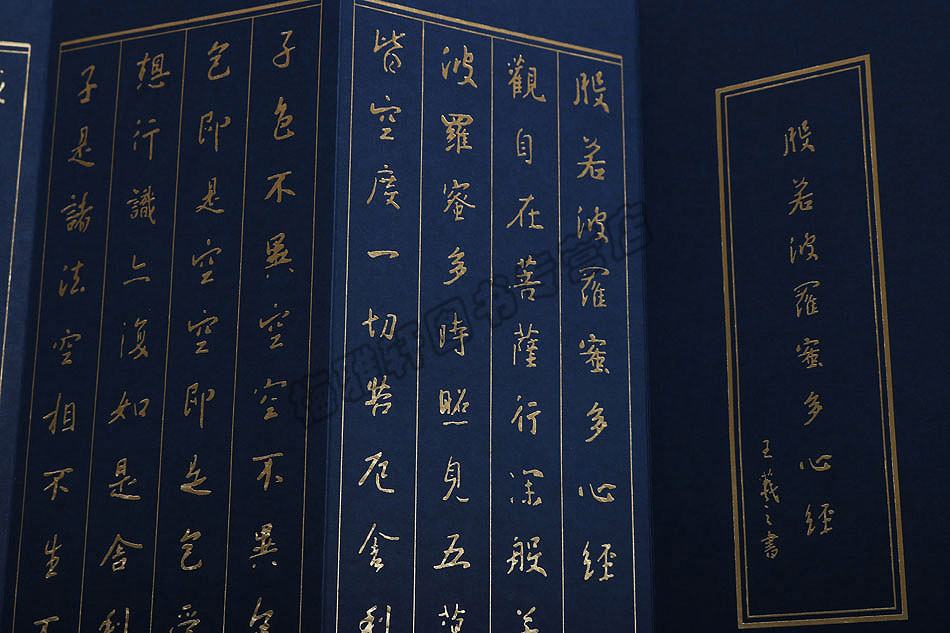 般若波羅蜜多心經
王羲之書
般若波羅蜜多心經
觀自在菩薩行深般若
波羅蜜多時照見五
皆空度一切苦厄舍利
子色不異空空不異色
色即是空空即是色受
想行識亦復如是舍利
子是諸法空相不生不
雅轩图书专营店